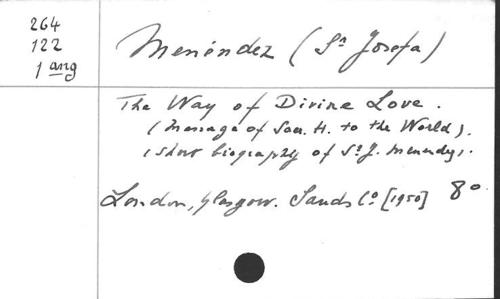 264
122
1 ang
Menéndez (Sr Josefa)
The Way of Divine Love.
(Message of Sac. H. to the World).
(short biography of Sr J. Menendez).
London, Glasgow. Sands Co [1950] 8°